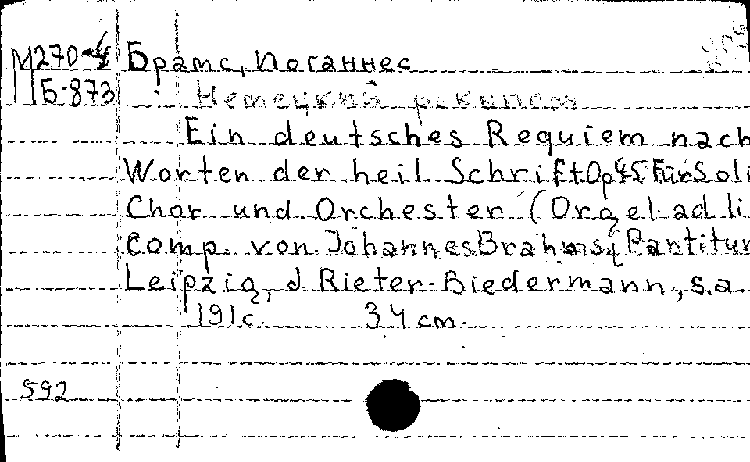 М270-4 Брамс, Иоганнес
Б-873 Немецкий реквием
Ein deutsches Requiem nach
Worten der heil Schrift Op45 Für Soli
Chor und Orchester (Orgel ad li
comp. von Johannes Brahms Partitur
Leipzig, J Rieter-Biedermann, s.a.
191с. 34 cm.
592